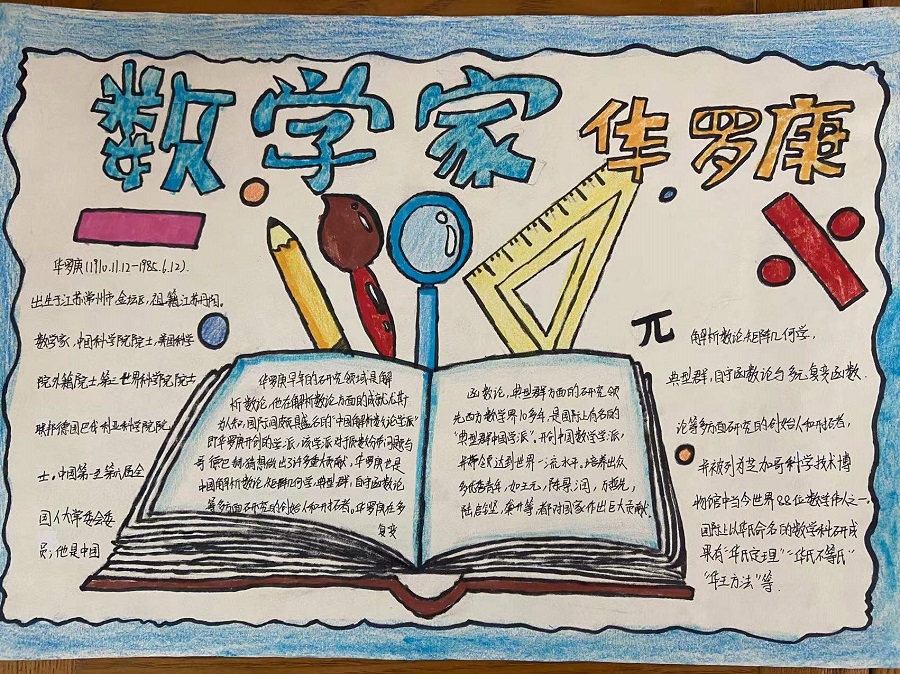 数学家 华罗康
华罗庚(1910.11.12-1985.6.12).
出生于江苏常州市金坛区,祖籍江苏丹阳。
数学家,中国科学院院士,美国科学
院外籍院士第三世界科学院院士
联邦德国巴伐利亚科学院院
士。中国第一至第六届全
国人大常委会委
员;他是中国
华罗庚早年的研究领域是解
析数论,他在解析数论方面的成就尤其
广为人知,国际间颇具盛名的“中国解析数论学派”
即华罗庚开创的学派,该学派对于质数分布问题与
哥德巴赫猜想做出了许多重大贡献,华罗庚也是
中国解析数论,矩阵几何学,典型群,自守函数论
等多方面研究的创始人和开拓者。华罗庚在多
复变
函数论,典型群方面的研究领
先西方数学界10多年,是国际上有名的
“典型群中国学派”。开创中国数学学派,
并带领达到世界一流水平。培养出众
多优秀青年,如王元,陈景润,万哲先,
陆启铿,龚升等,都对国家作出巨大贡献.
π
解析数论,矩阵几何学,
典型群,自守函数论与多元复变函数
论等多方面研究的创始人和开拓者,
并被列为芝加哥科学技术博
物馆中当今世界88位数学伟人之一.
国际上以华氏命名的数学科研成
果有“华氏定理”“华氏不等式”
“华王方法”等.